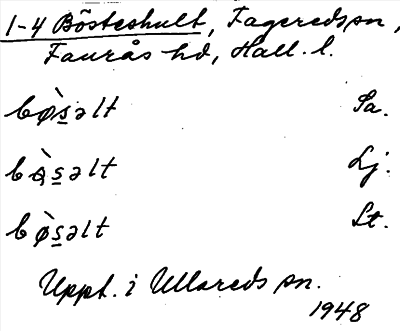 1-4 Bösteshult, Fagereds sn,
Faurås hd, Hall. l.
bø̀s̲əlt Sa.
bø̀s̲əlt Lj.
bø̀s̲əlt Lt.
Uppt. i Ullareds sn.
1948